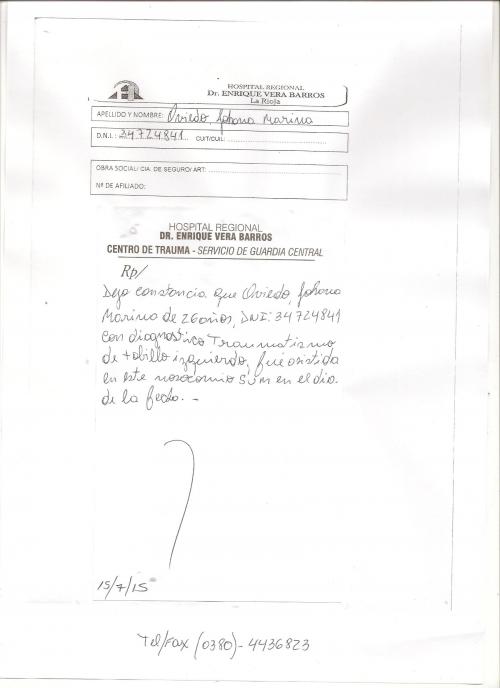 HOSPITAL REGIONAL
Dr. ENRIQUE VERA BARROS
La Rioja
APELLIDO Y NOMBRE: Oviedo, Johana Marina
D.N.I.: 34724841 CUIT/CUIL:
OBRA SOCIAL/ CIA. DE SEGURO/ ART:
Nº DE AFILIADO:
HOSPITAL REGIONAL
DR. ENRIQUE VERA BARROS
CENTRO DE TRAUMA - SERVICIO DE GUARDIA CENTRAL
Rp/
Dejo constancia que Oviedo, Johana
Marina de 26 años, DNI: 34724841
con diagnostico Traumatismo
de tobillo izquierdo, fué asistida
en este nosocomio en el dia
de la fecha. -
15/7/15
Tel/Fax (0380)- 4436823